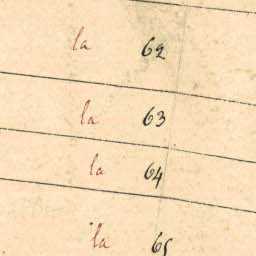 la 62
la 63
la 64
la 65